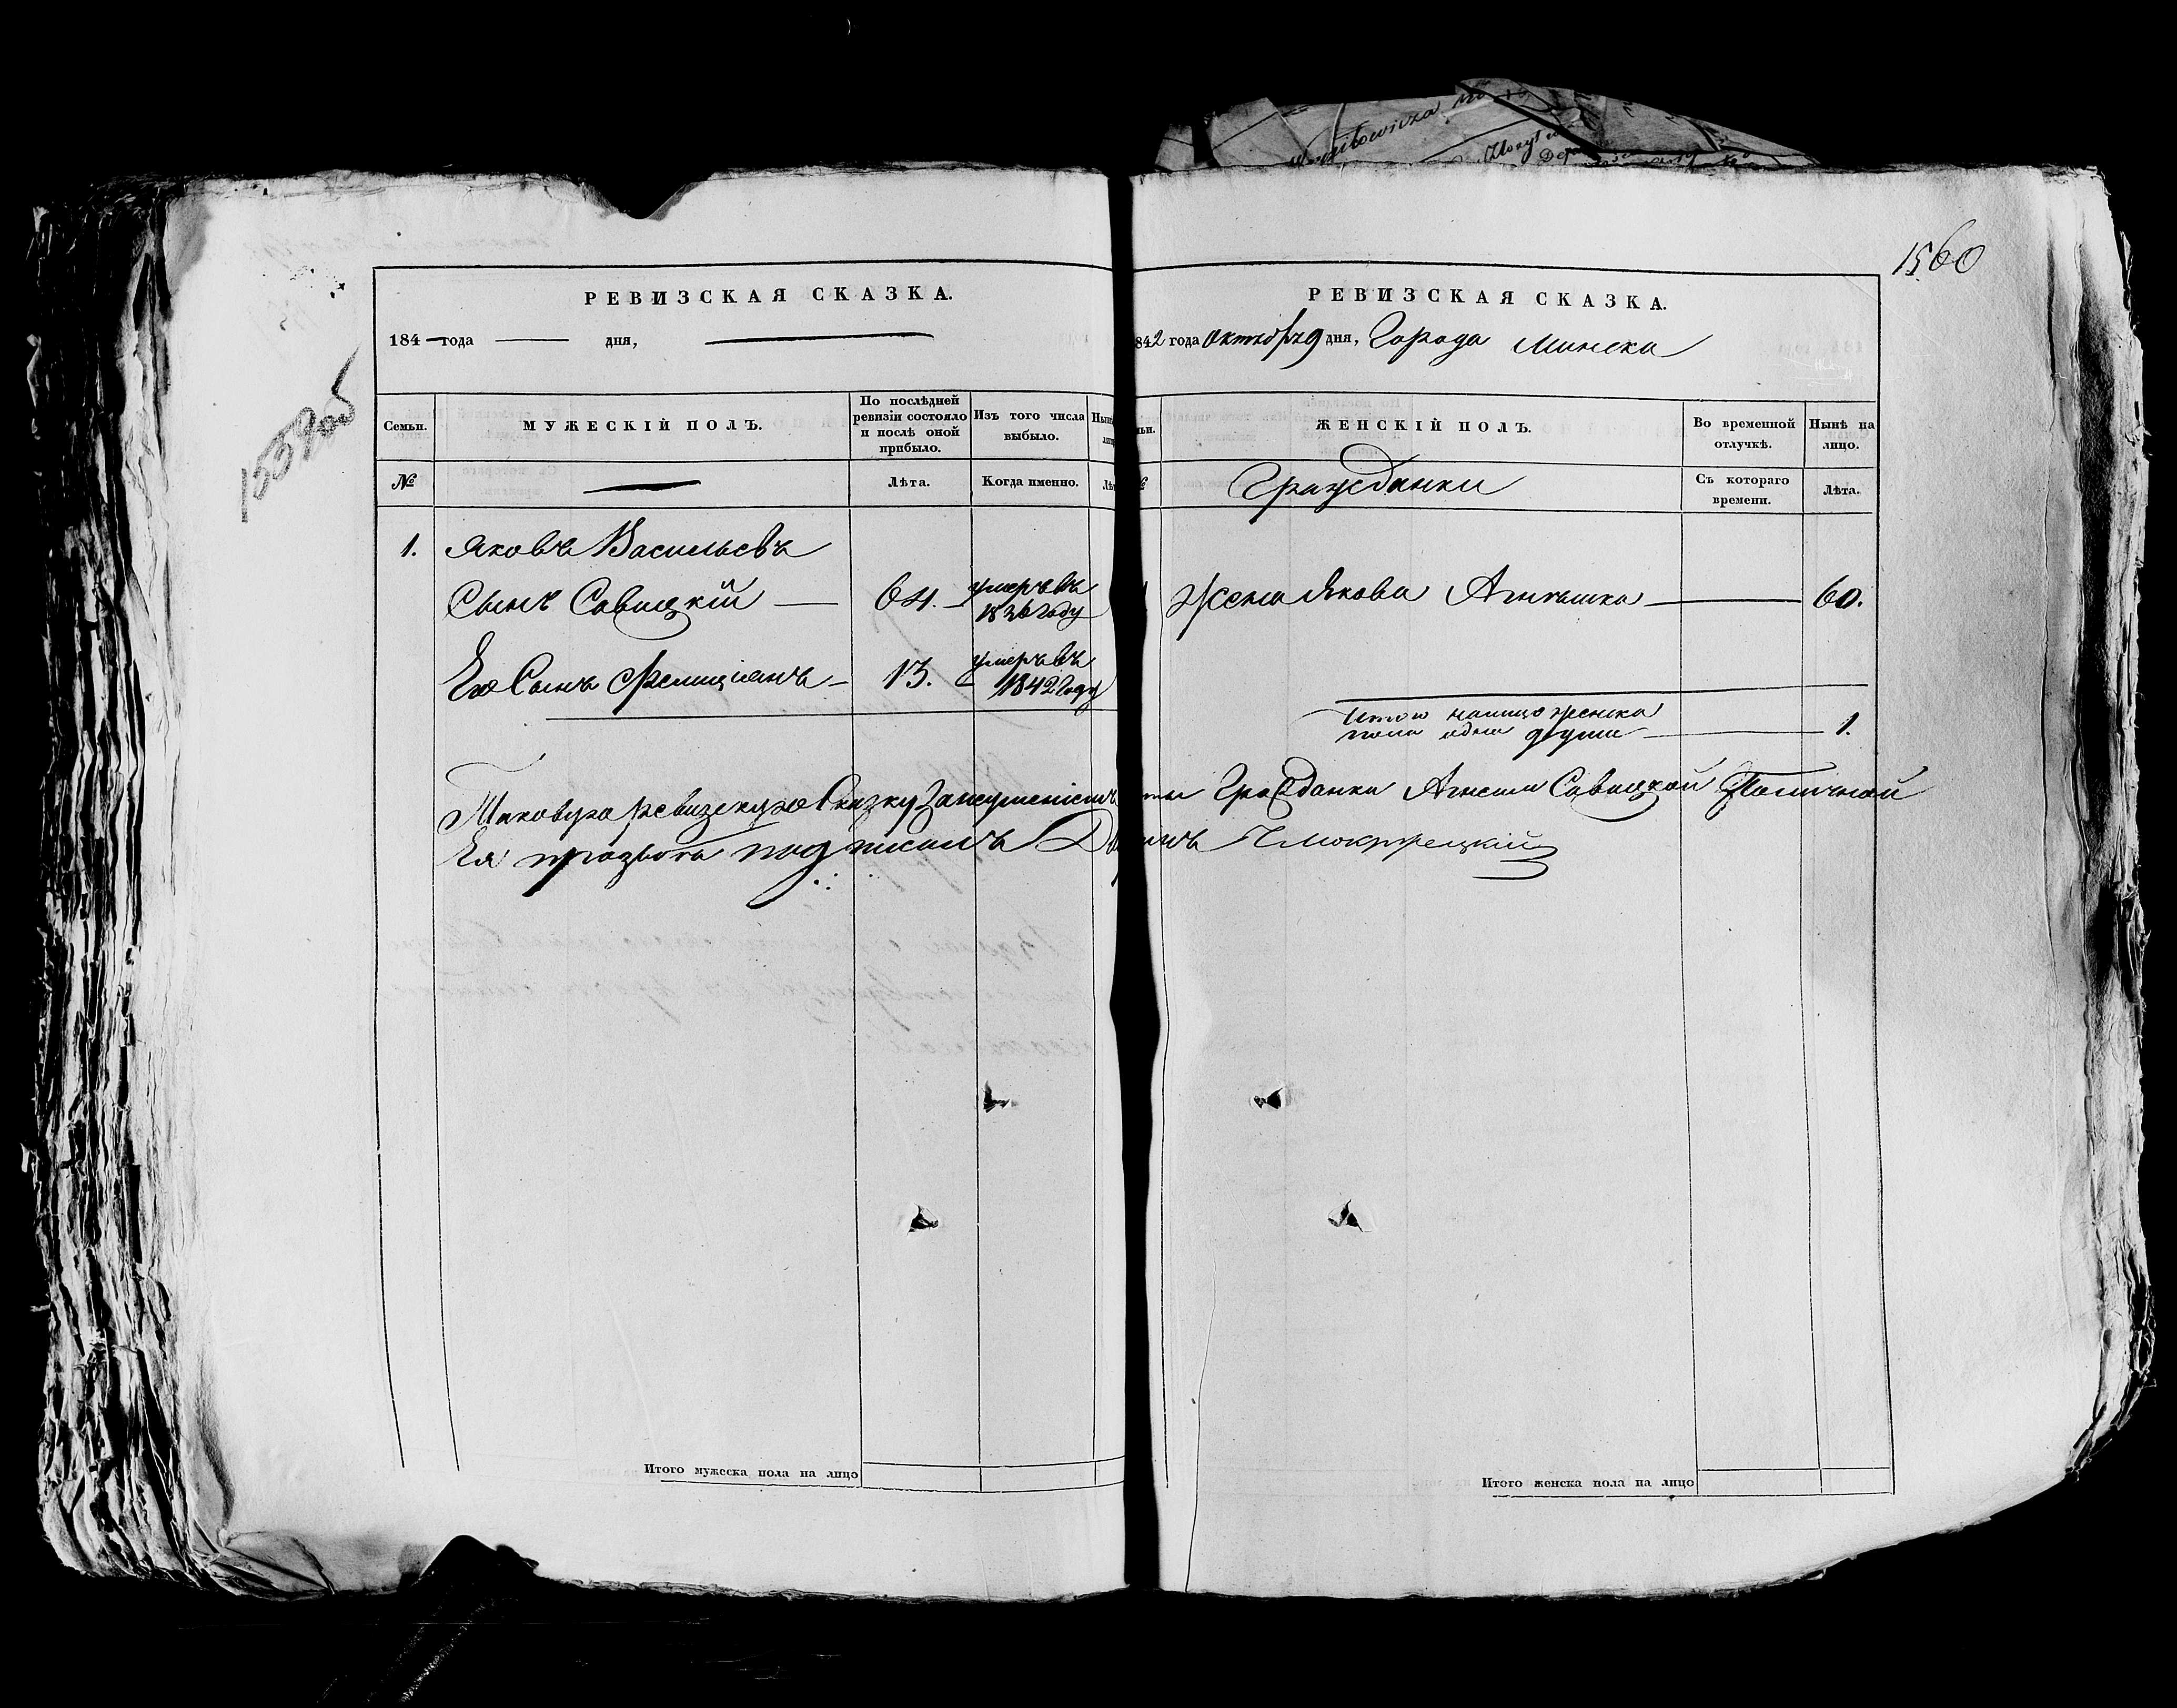 1560
РЕВИЗСКАЯ СКАЗКА.
184 года дня,
Семьи.
МУЖЕСКІЙ ПОЛЪ.
По послѣдней ревизіи состояло и послѣ оной прибыло.
Изъ того числа выбыло.
№
Лѣта.
Когда именно.
1. Яковъ Васильевъ
Сынъ Савицкій 64. умеръ въ 1836 году
Его Сынъ Фелиціанъ 13. умеръ въ 1842 году
Таковую ревизскую Сказку
Ея прозьбы подписалъ
Итого мужеска пола на лицо
РЕВИЗСКАЯ СКАЗКА.
842 года Октября 9 дня, Города Минска
ЖЕНСКІЙ ПОЛЪ.
Во временной отлучкѣ.
Нынѣ на лицо.
Гражданки
Съ котораго времени.
Лѣта.
Жена Якова Агнешка 60.
Итого налицо женска
пола одна душа 1.
Гражданки Агнешки Савицкой
Итого женска пола на лицо